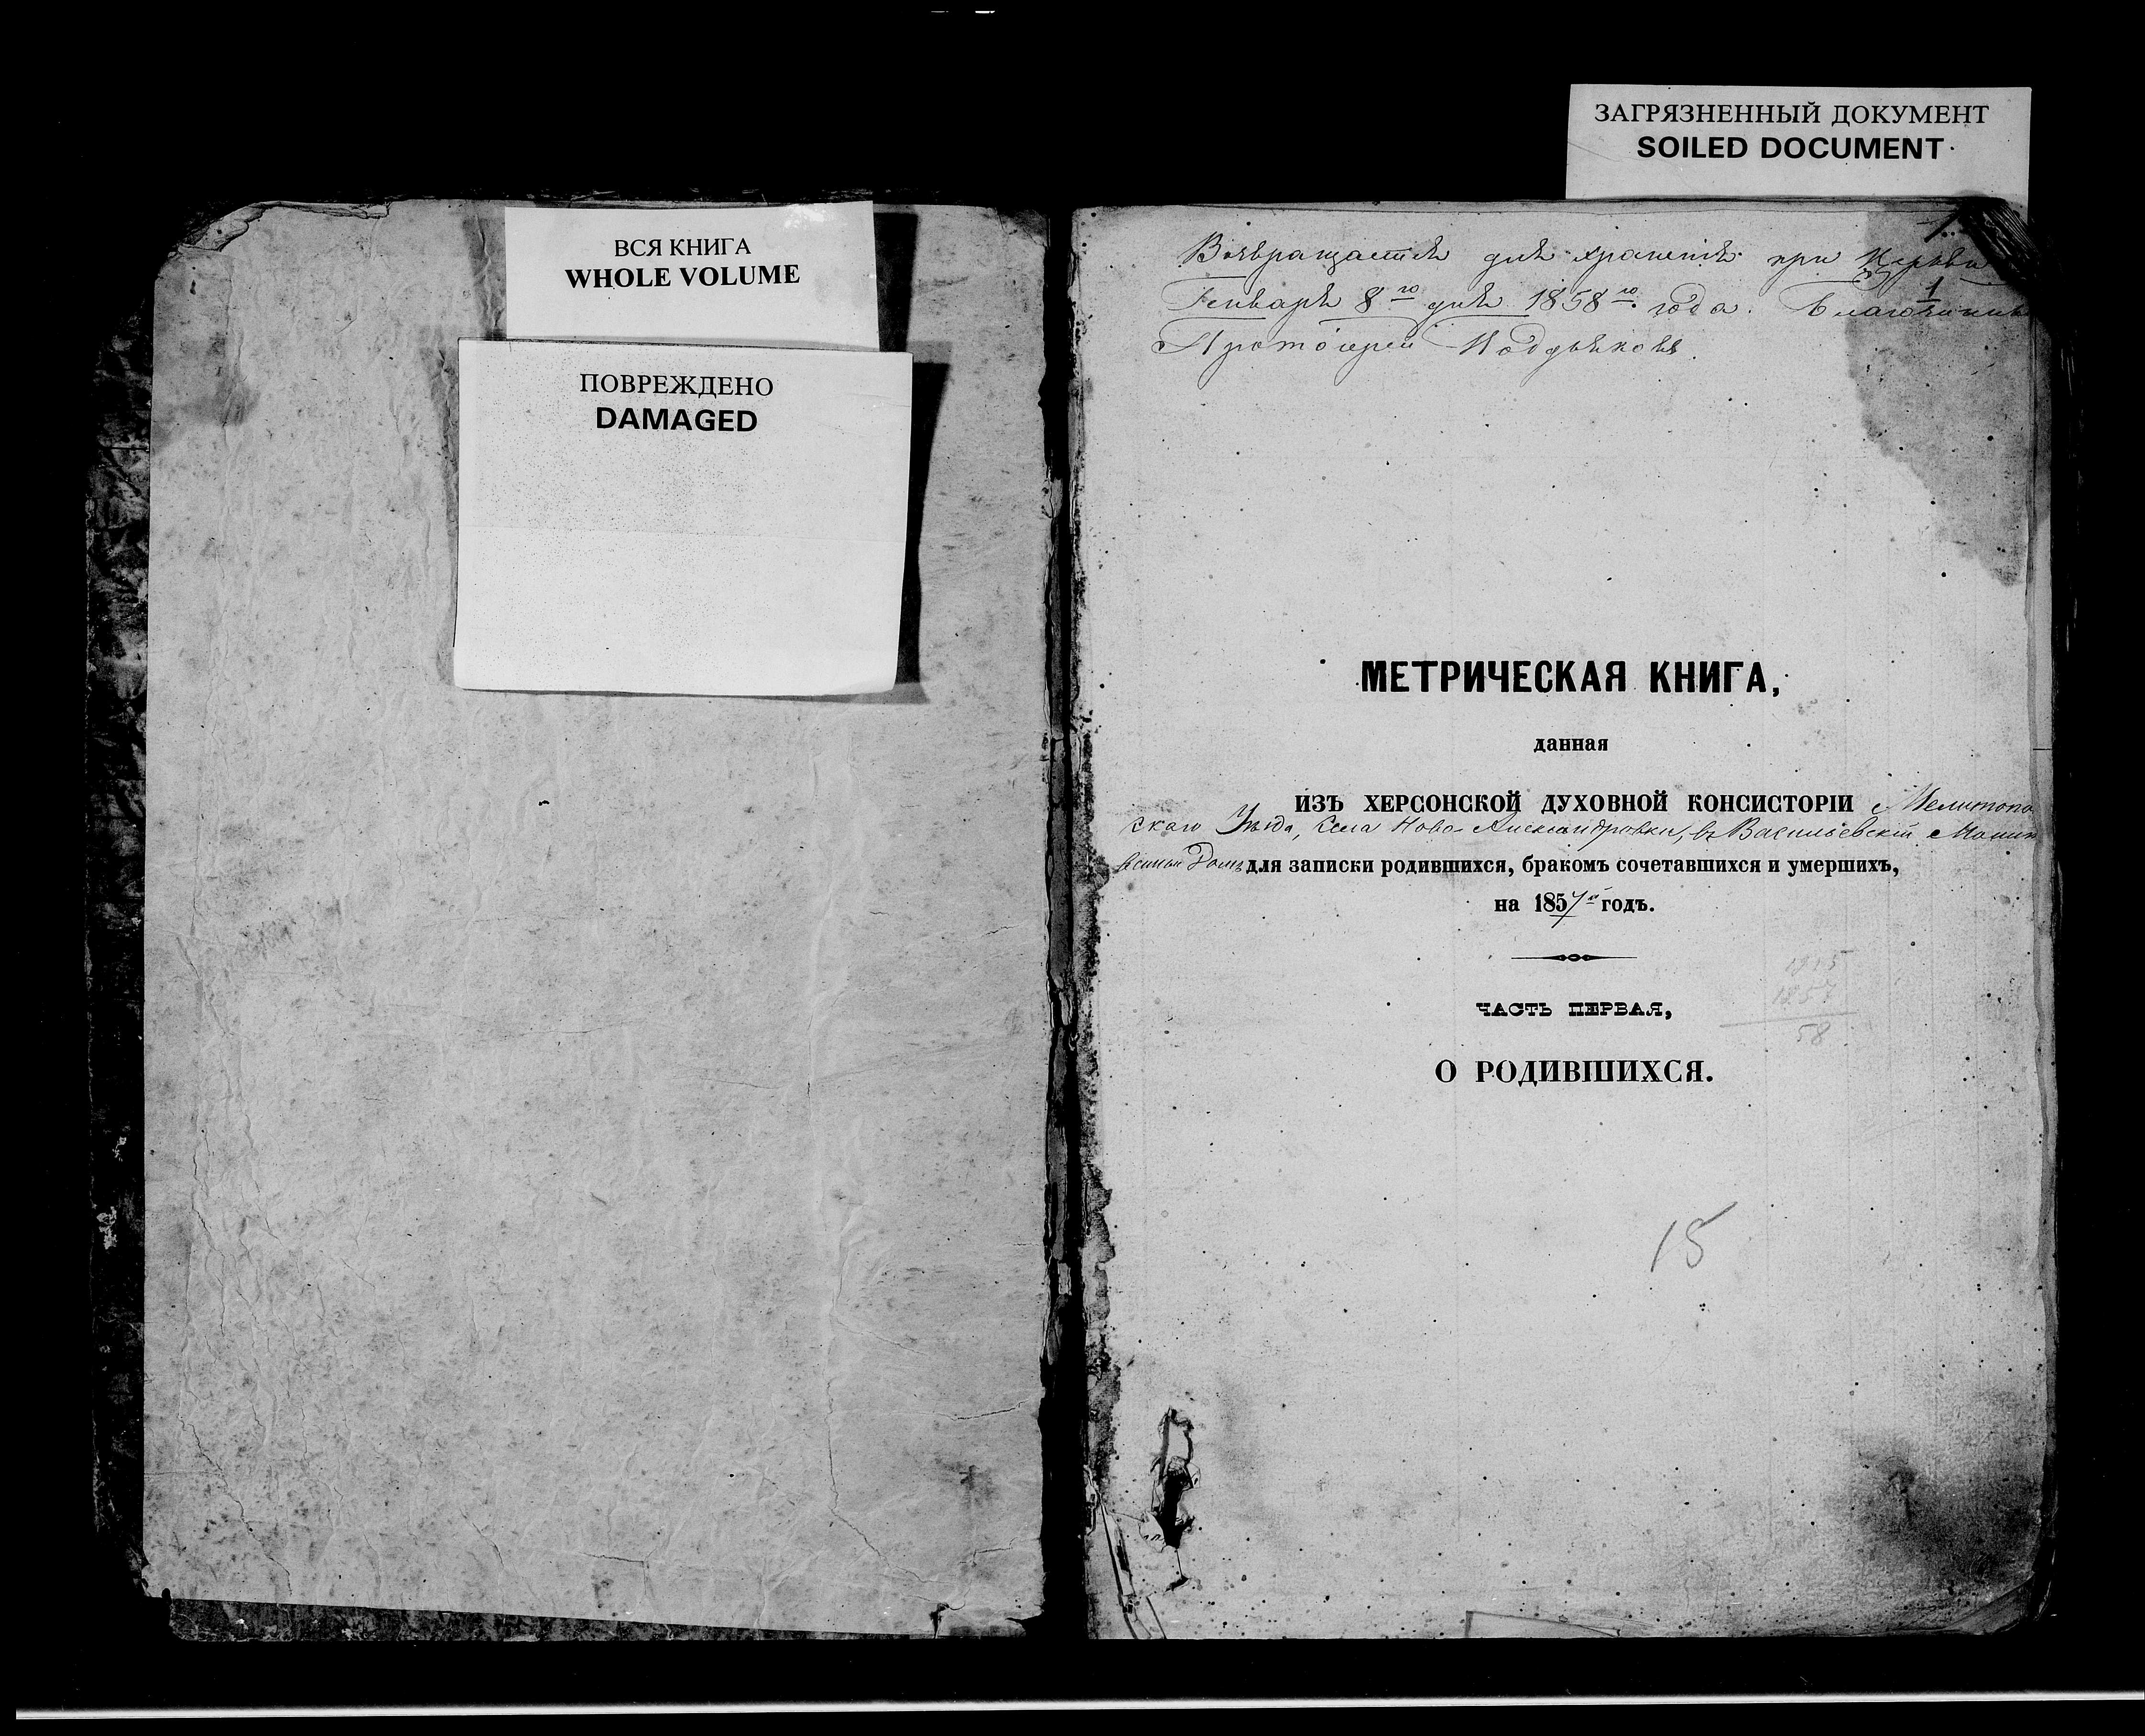 ЗАГРЯЗНЕННЫЙ ДОКУМЕНТ
SOILED DOCUMENT
ВСЯ КНИГА
WHOLE VOLUME
ПОВРЕЖДЕНО
DAMAGED
1
Возвращается для храненія при Церкви
1
Генваря 8го дня 1858го года. Благочинный
Протоіерей Поддьяковъ.
МЕТРИЧЕСКАЯ КНИГА,
данная
ИЗЪ ХЕРСОНСКОЙ ДУХОВНОЙ КОНСИСТОРІИ Мелитопо
скаго Уѣзда, Села Ново-Александровки, въ Васильевскій Молит
венный Домъ для записки родившихся, бракомъ сочетавшихся и умершихъ,
на 1857й годъ.
1915
1857
58
ЧАСТЬ ПЕРВАЯ,
О РОДИВШИХСЯ.
15